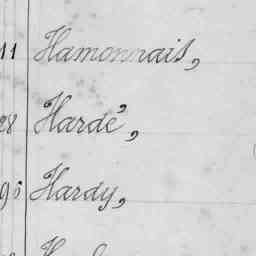 11 Hamonnais,
28 Hardé,
96 Hardy,